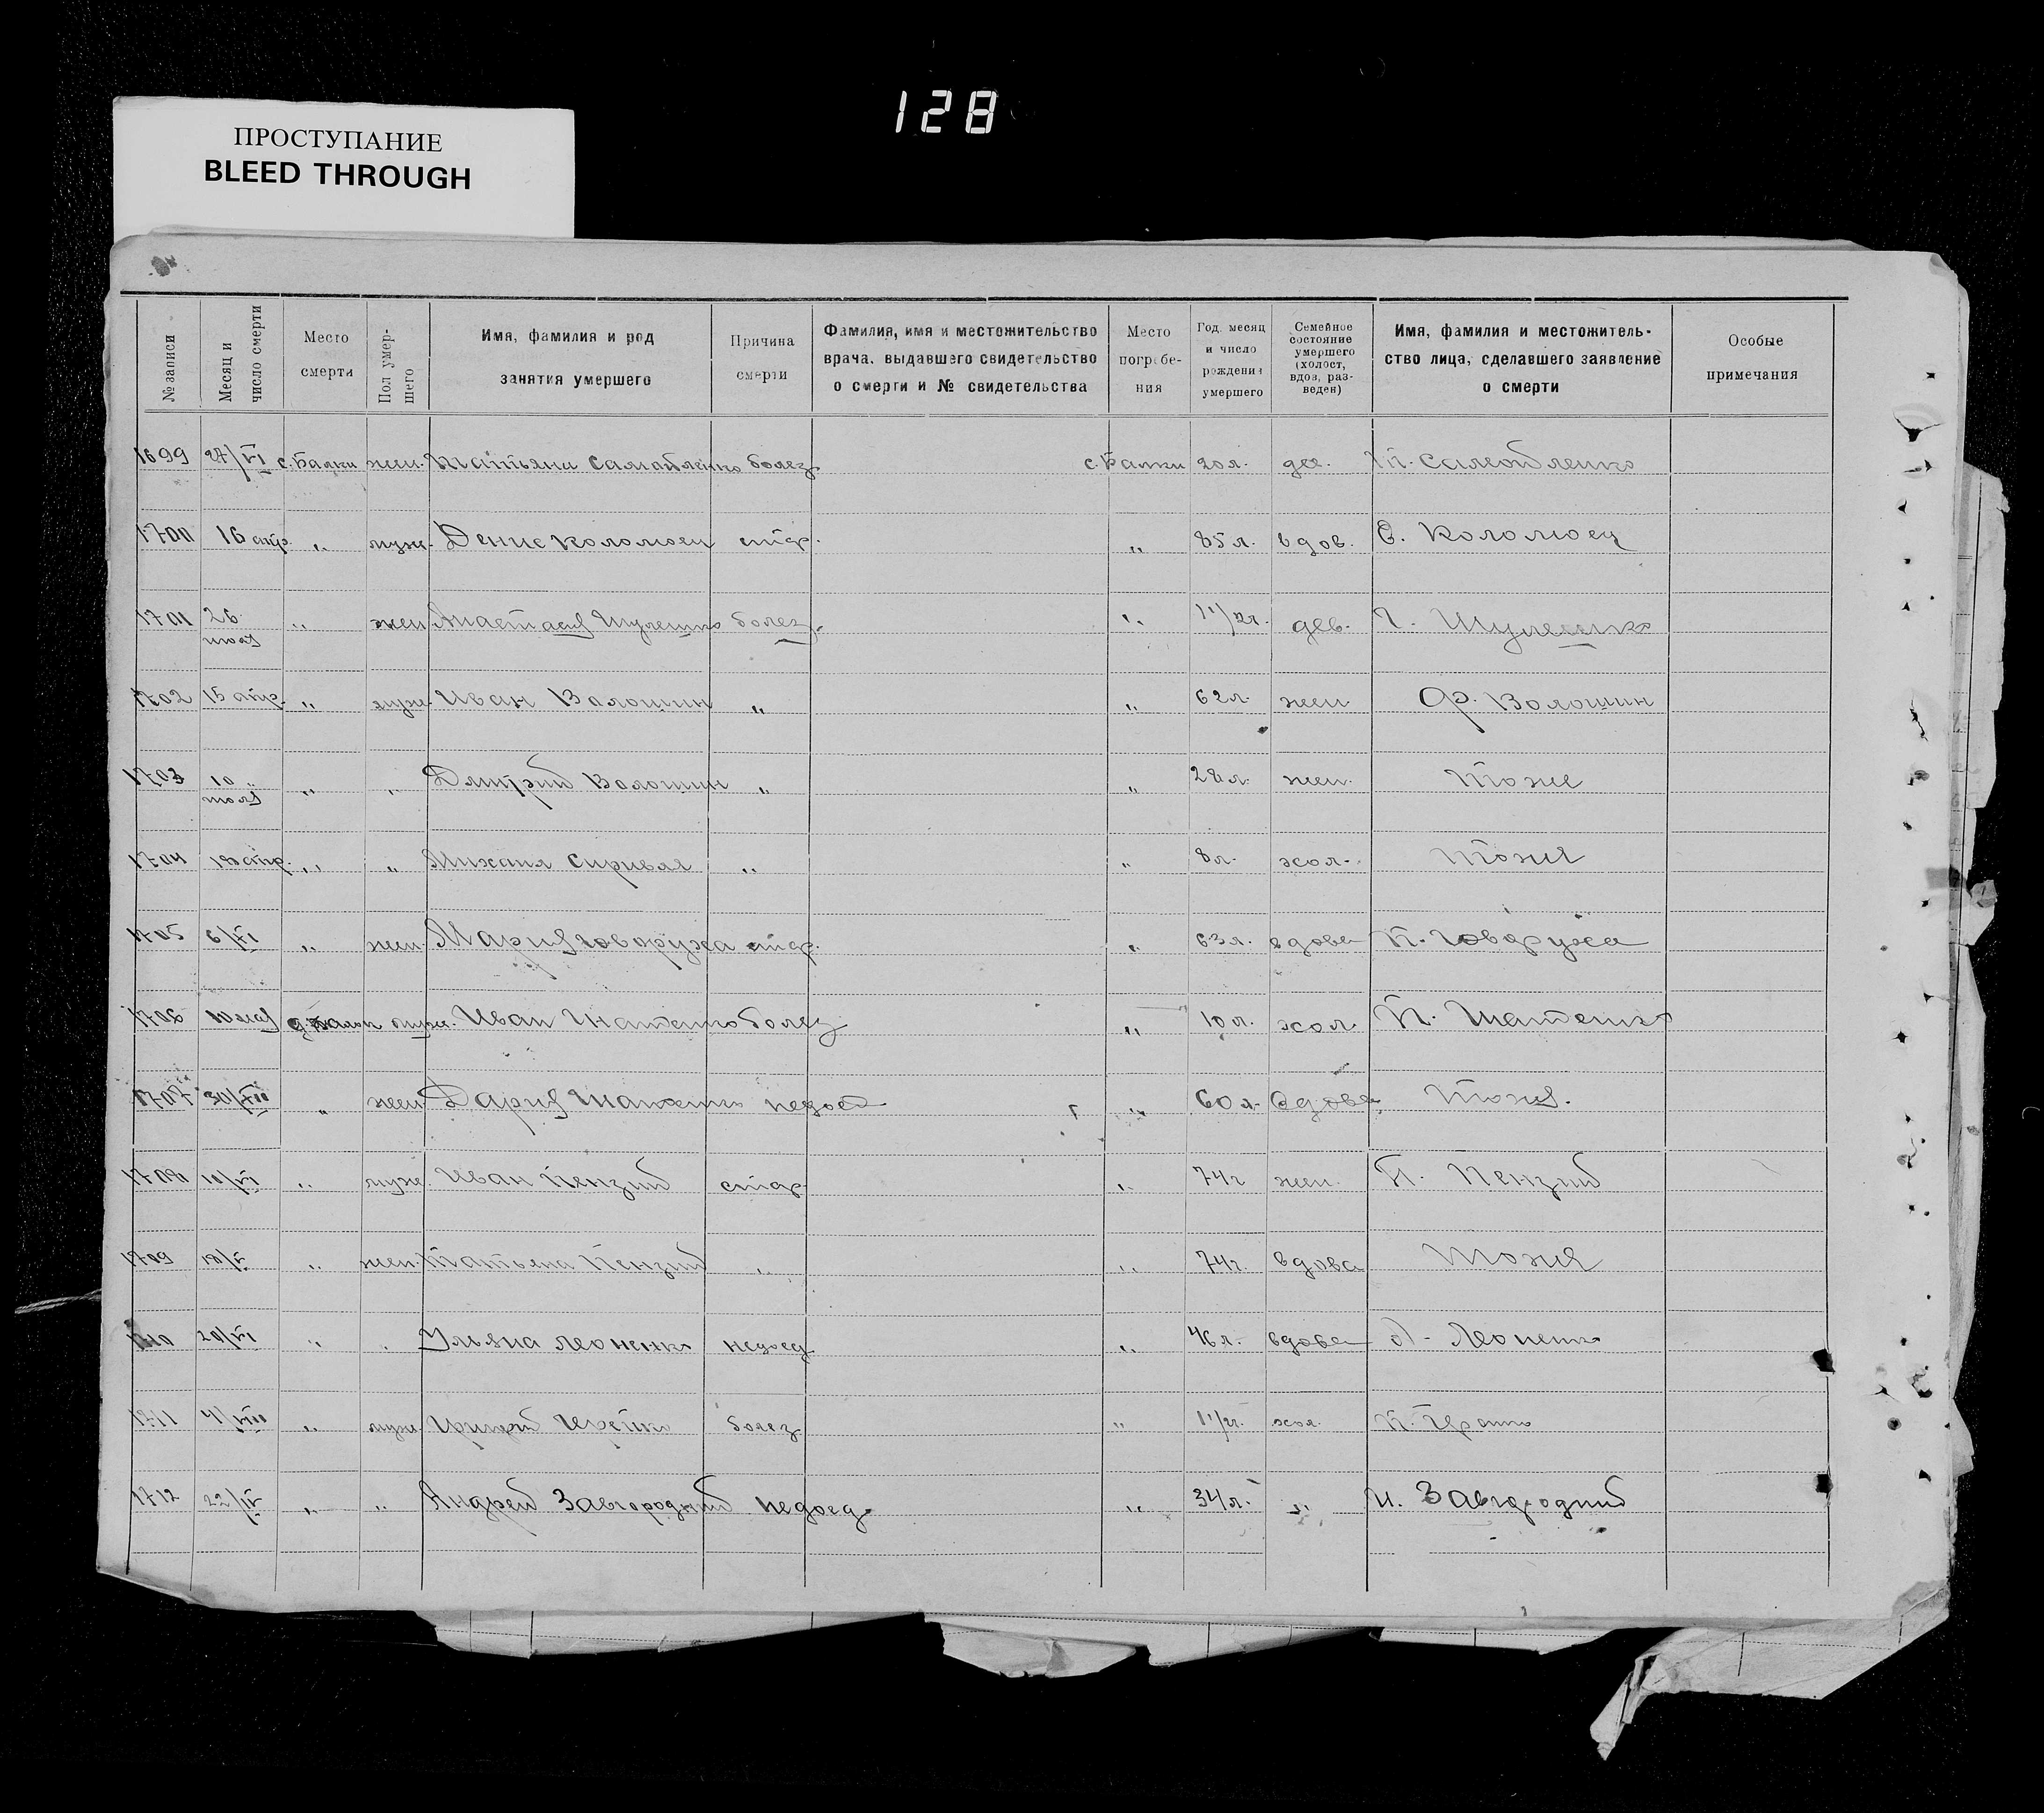 128
ПРОСТУПАНИЕ
BLEED THROUGH
№ записи Месяц и число смерти Место смерти Пол умершего Имя, фамилия и род занятия умершего Причина смерти Фамилия, имя и местожительство врача, выдавшего свидетельство о смерти и № свидетельства Место погребения Год, месяц и число рождения умершего Семейное состояние умершего (холост, вдов, разведен) Имя, фамилия и местожительство лица, сделавшего заявление о смерти Особые примечания
1699 27/VI с. Балки жен. Татьяна Самойленко болез. с. Балки 20 л. дев. Т. Самойленко
1700 16 апр. „ муж. Денис Коломоец стар. „ 85 л. вдов. С. Коломоец
1701 26 июля „ жен Анастасия Шулешко болез. „ 1 1/2 г. дев. Г. Шулешко
1702 15 апр. „ муж. Иван Волошин „ „ 62 л. жен Ф. Волошин
1703 10 июля „ „ Дмитрий Волошин „ „ 28 л. жен. Тоже
1704 апр. „ „ Михаил „ „ 8 л. хол. Тоже
1705 6/VI „ жен. Мария Говоруха стар. „ 63 л. вдова П. Говоруха
1706 муж. Иван болез „ 10 л. хол. П.
1707 30/VIII „ жен Дария недоед „ 60 л. вдова Тоже.
1708 10/VI „ муж. Иван Пензий стар „ 74 г жен. П. Пензий
1709 „ жен. Татьяна Пензий „ „ 74 г. вдова Тоже
1710 20/VI „ „ Ульяна Леоненко недоед „ 46 л. вдова Леоненко
1711 „ муж. болез „ 1 1/2 г. хол.
1712 „ „ Андрей Завгородний недоед „ 34 л. „ И. Завгородний